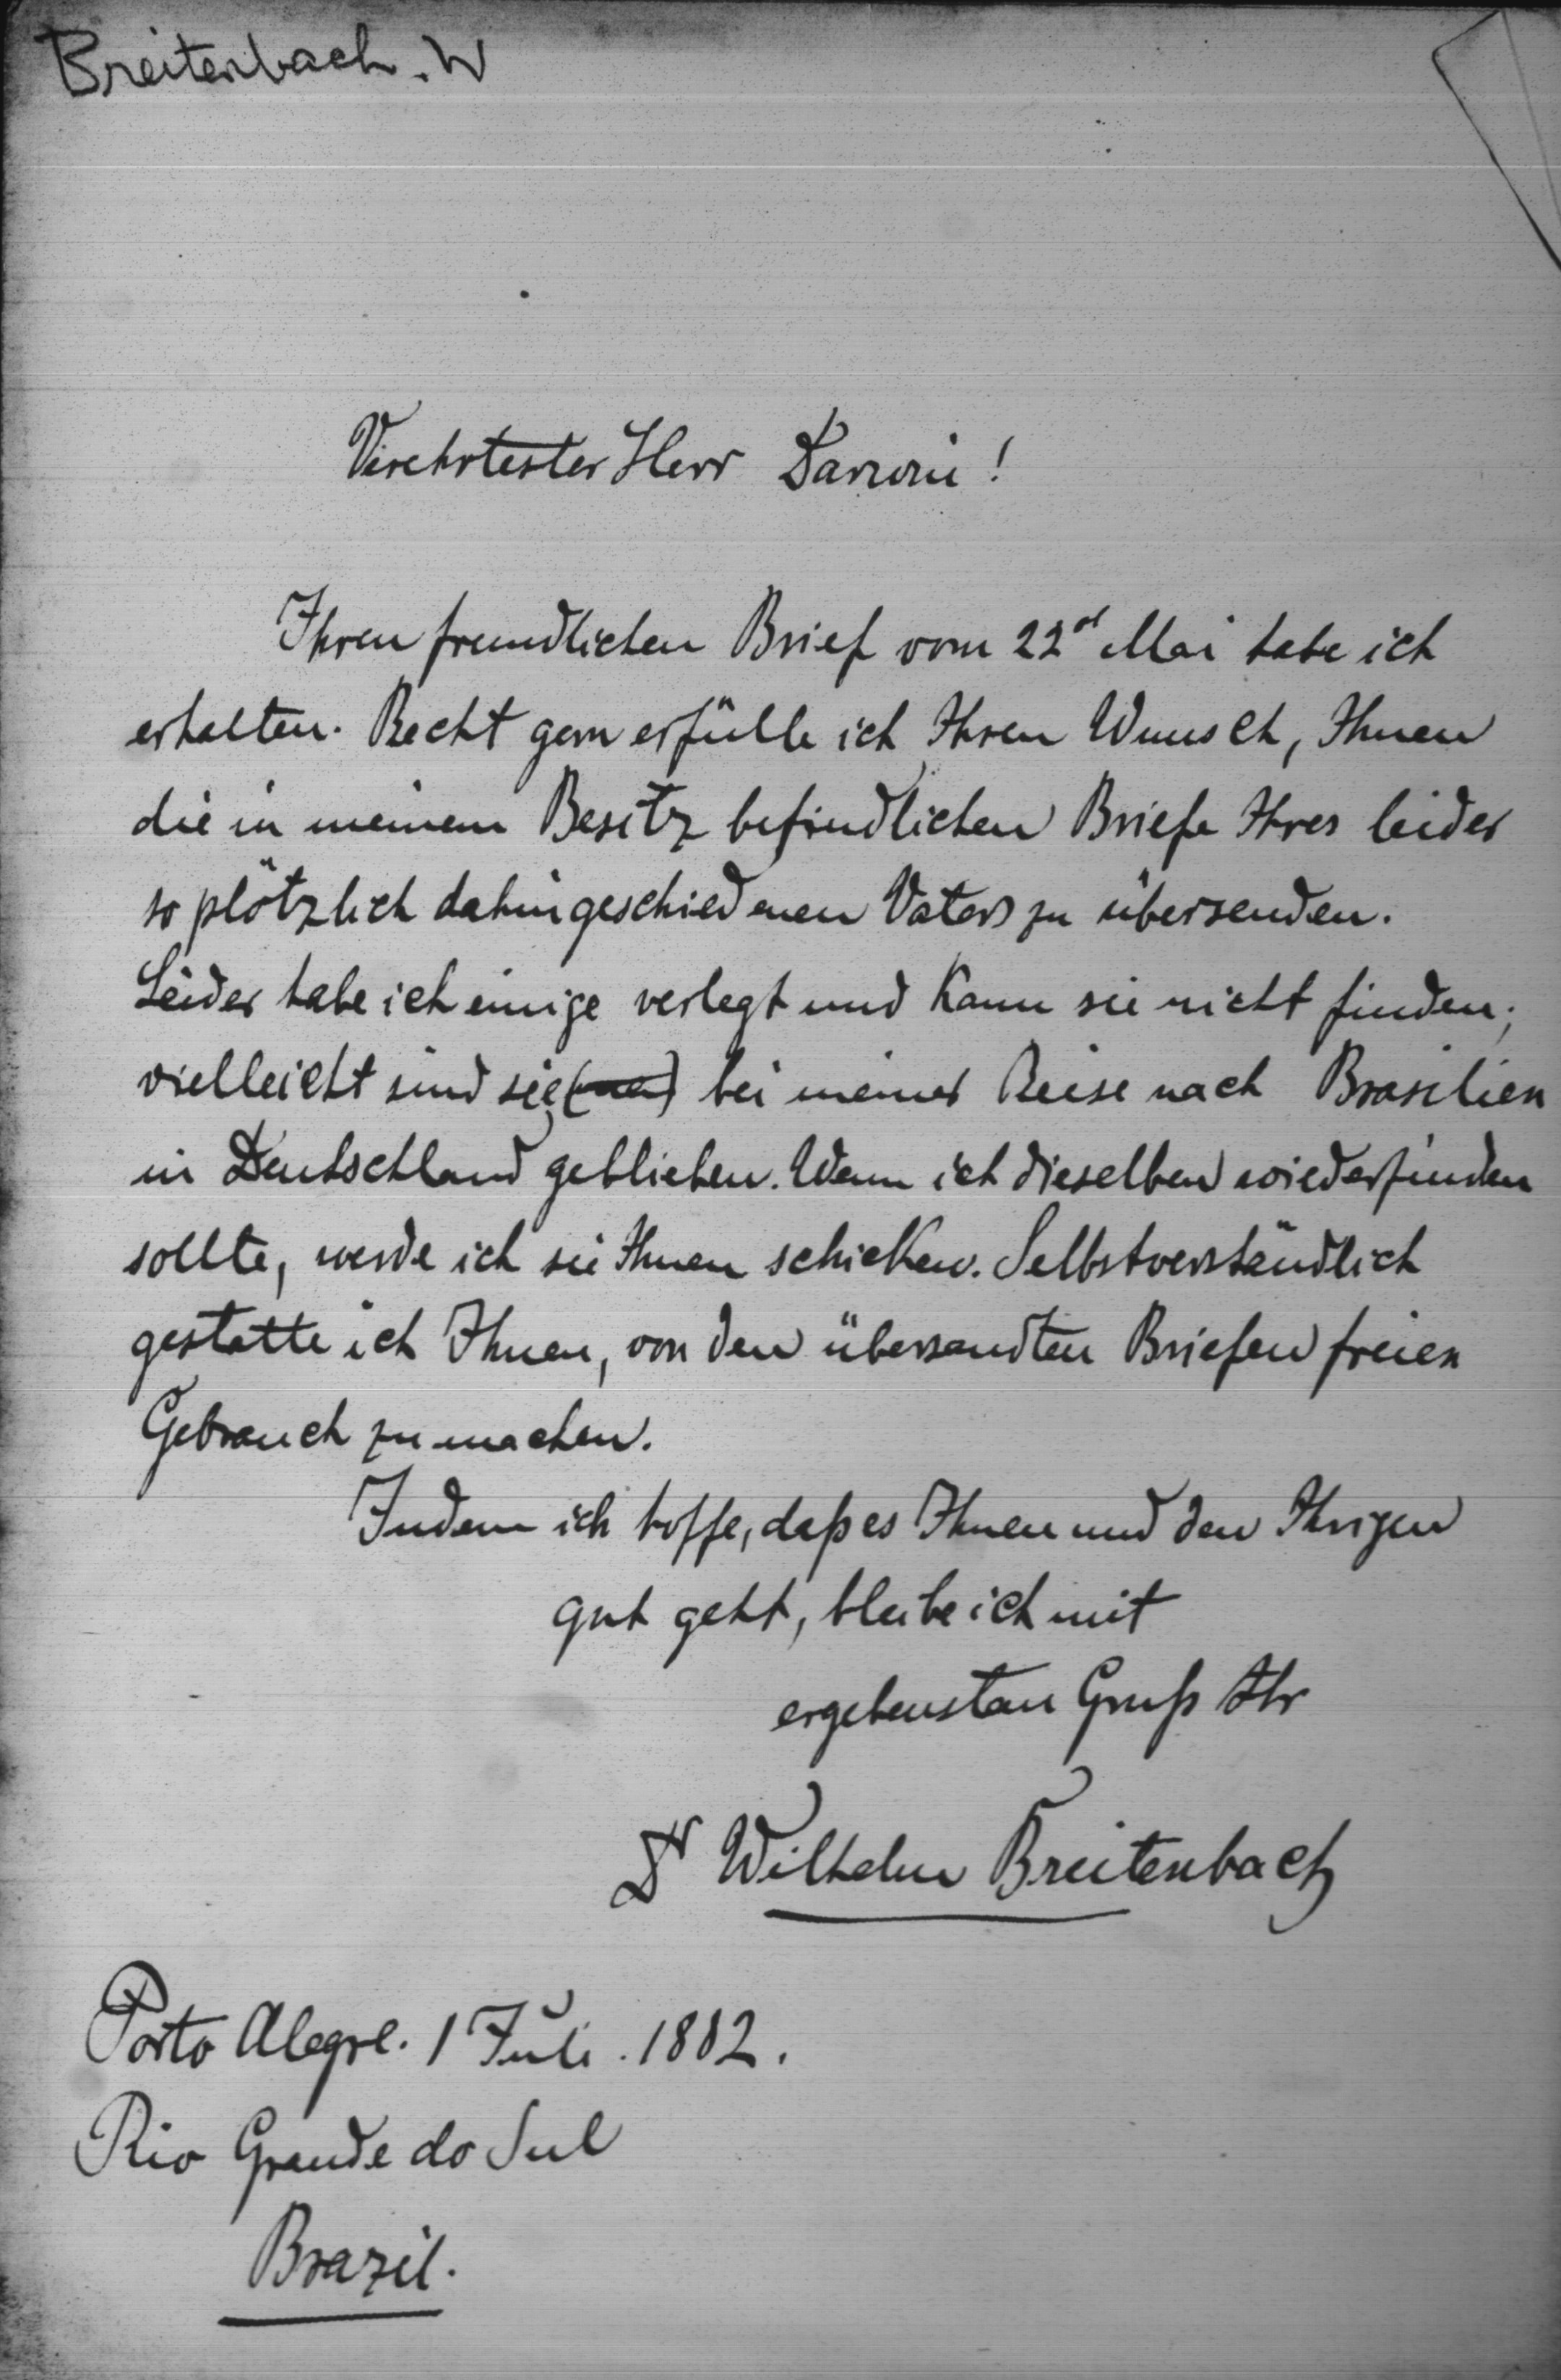 Breitenbach. W
Verehrtester Herr Darwin!
Ihren freundlichen Brief vom 22st Mai habe ich
erhalten. Recht gern erfülle ich Ihren Wunsch, Ihnen
die in meinem Besitz befindlichen Briefe Ihres leider
so plötzlich dahingeschiedenen Vaters zu übersenden.
Leider habe ich einige verlegt und kann sie nicht finden;
vielleicht sind sie bei meiner Reise nach Brasilien
in Deutschland geblieben. Wenn ich dieselben wiederfinden
sollte, werde ich sie Ihnen schicken. Selbstverständlich
gestatte ich Ihnen, von den übersandten Briefen freien
Gebrauch zu machen.
Indem ich hoffe, daß es Ihnen und den Ihrigen
gut geht, bleibe ich mit
ergebenstem Gruß Ihr
Dr Wilhelm Breitenbach
Porto Alegre. 1 Juli. 1882.
Rio Grande do Sul
Brazil.